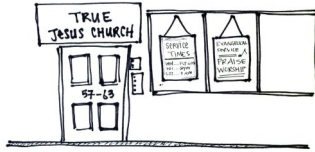 TRUE
JESUS CHURCH
SERVICE
TIMES
EVANGELICAL
SERVICE
PRAISE
WORSHIP
57-63